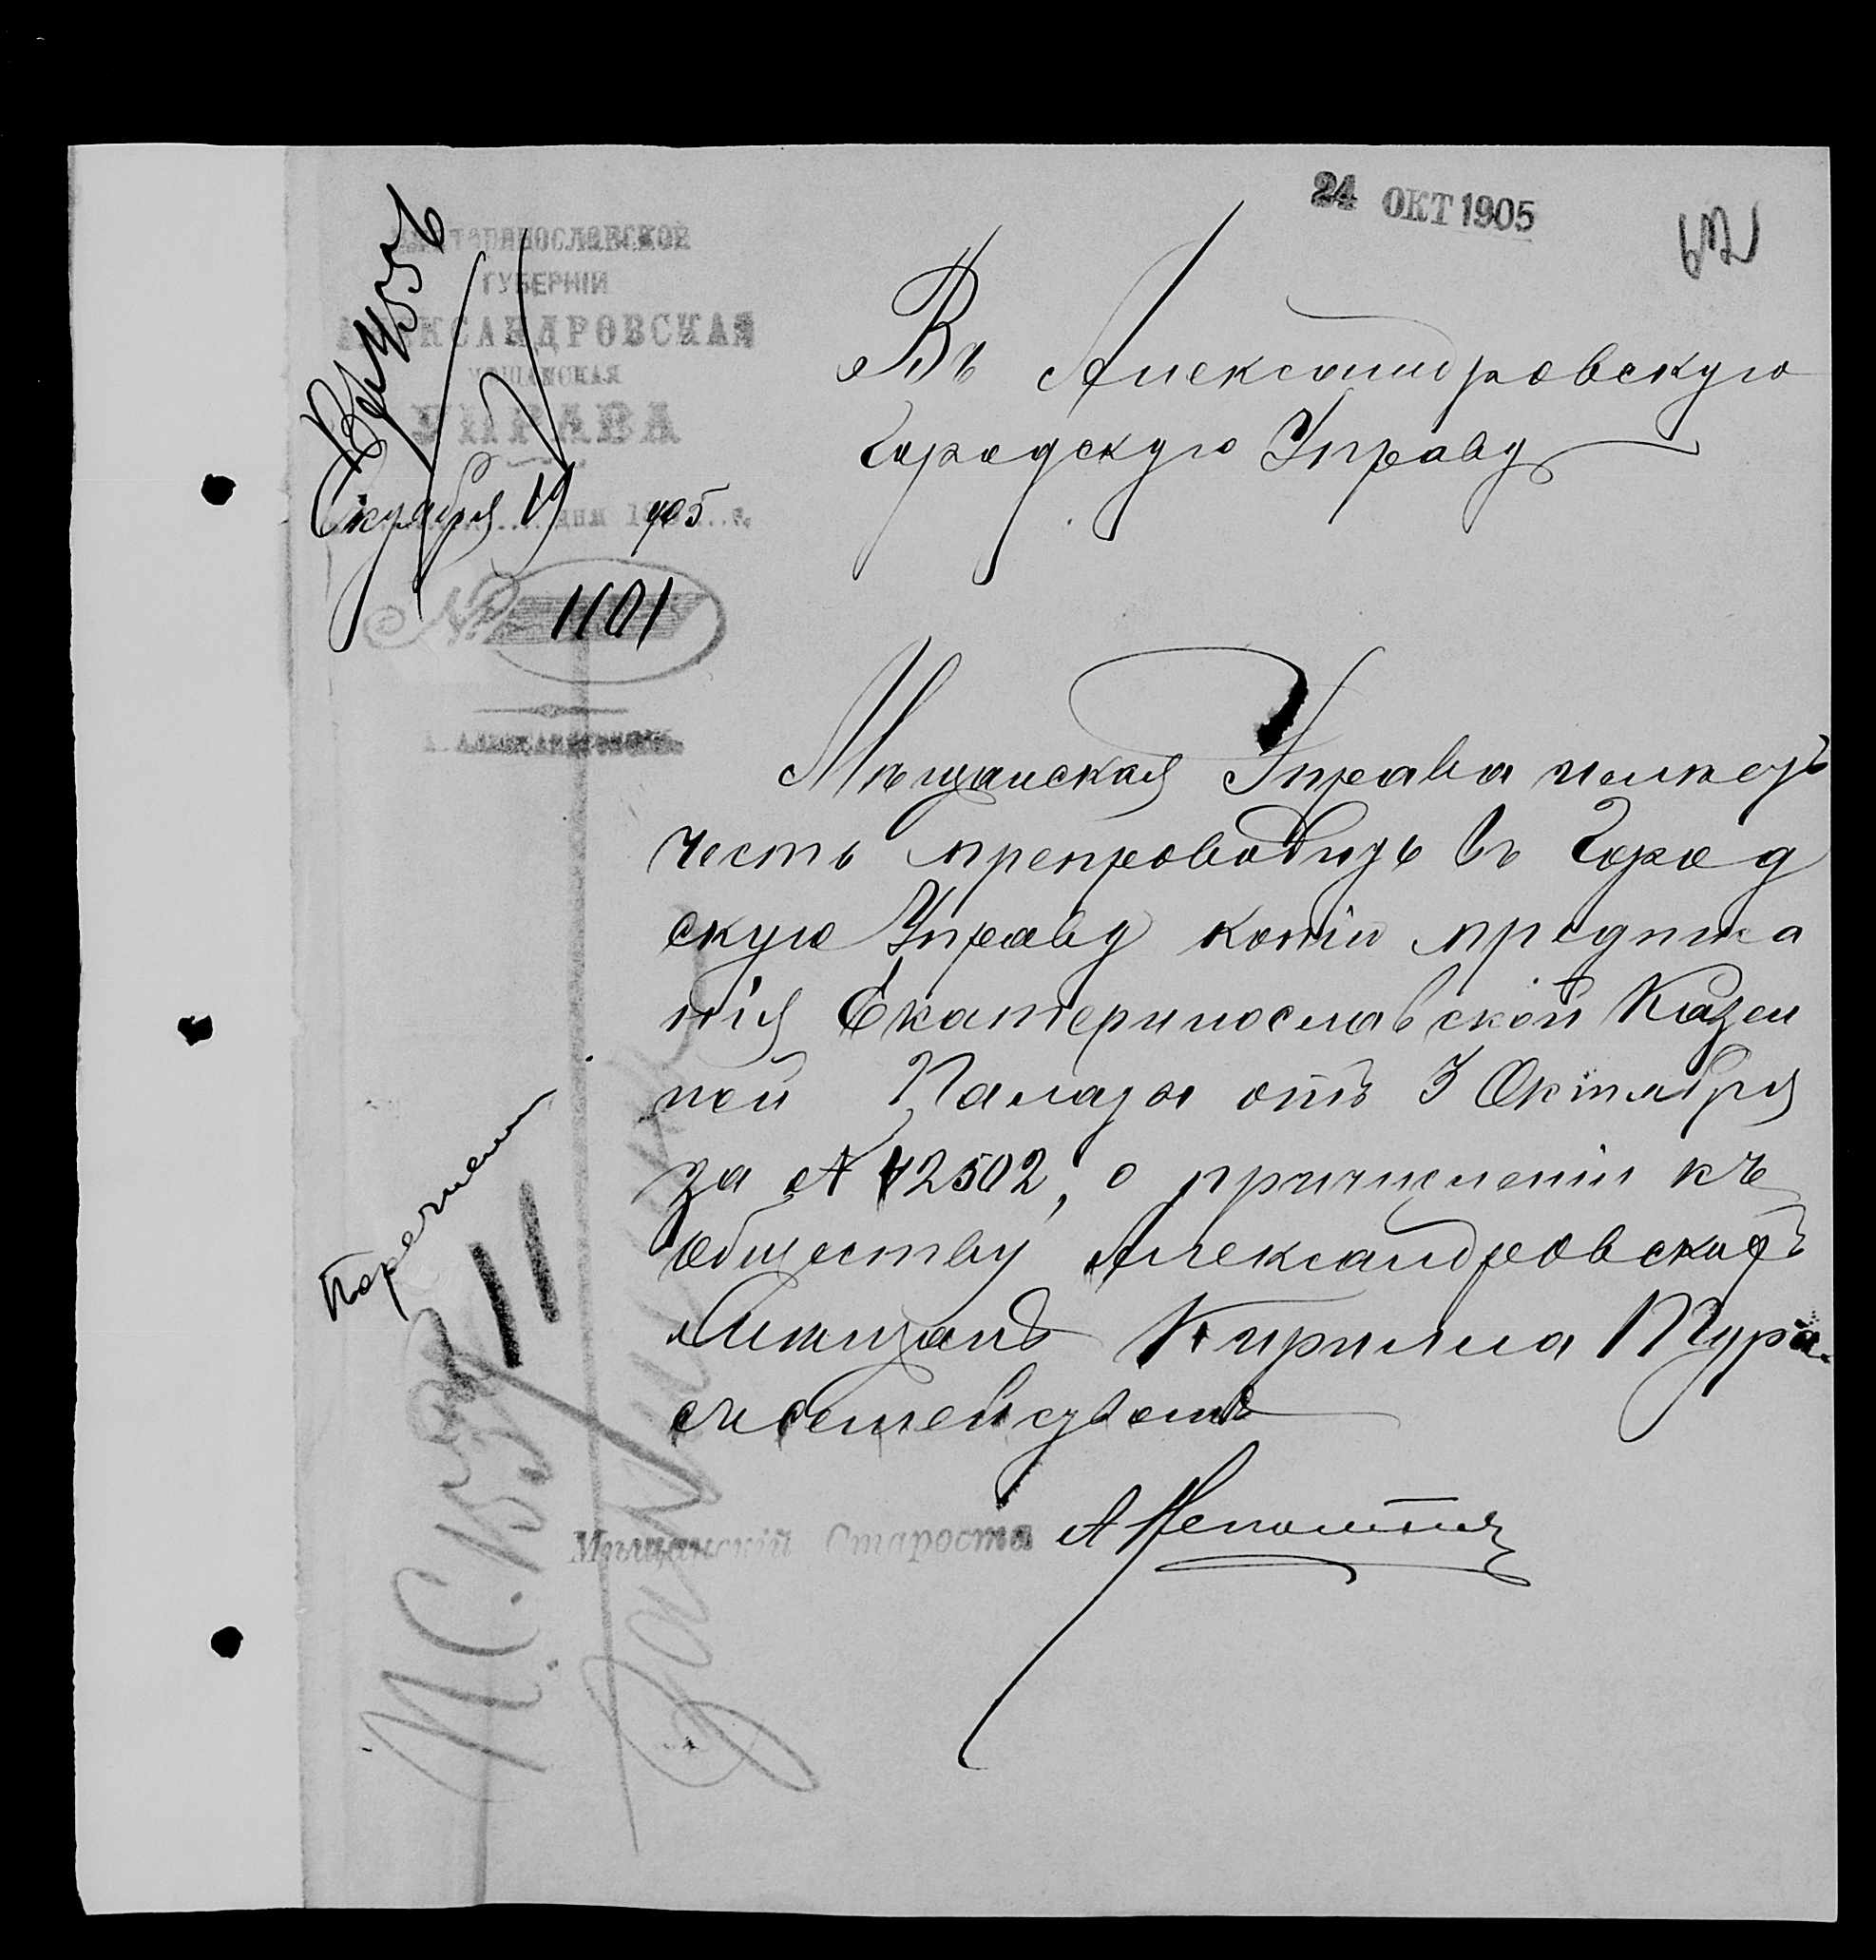 24 ОКТ 1905
Екатеринославской
ГУБЕРНІИ
АЛЕКСАНДРОВСКАЯ
МѢЩАНСКАЯ
УПРАВА
Октября 19 дня 1905 г.
№ 1101
г. Александровскъ
Въ Александровскую
Городскую Управу
Мѣщанская Управа имѣетъ
честь препроводить въ Город
скую Управу копію предписа
нія Екатеринославской Казен
ной Палаты отъ 3 Октября
за № 42502, о причисленіи къ
обществу Александровскихъ
мѣщанъ Кирилла Тура
съ семействомъ
Мѣщанскій Староста